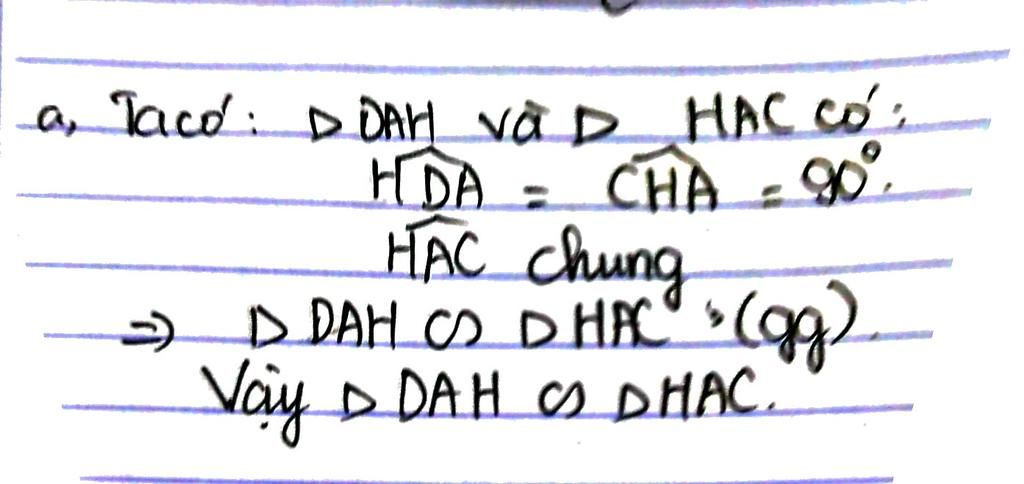 a, Ta có: △ DAH và △ HAC có:
∠HDA = ∠CHA = 90°.
∠HAC chung
=> △ DAH ∽ △ HAC (gg).
Vậy △ DAH ∽ △ HAC.